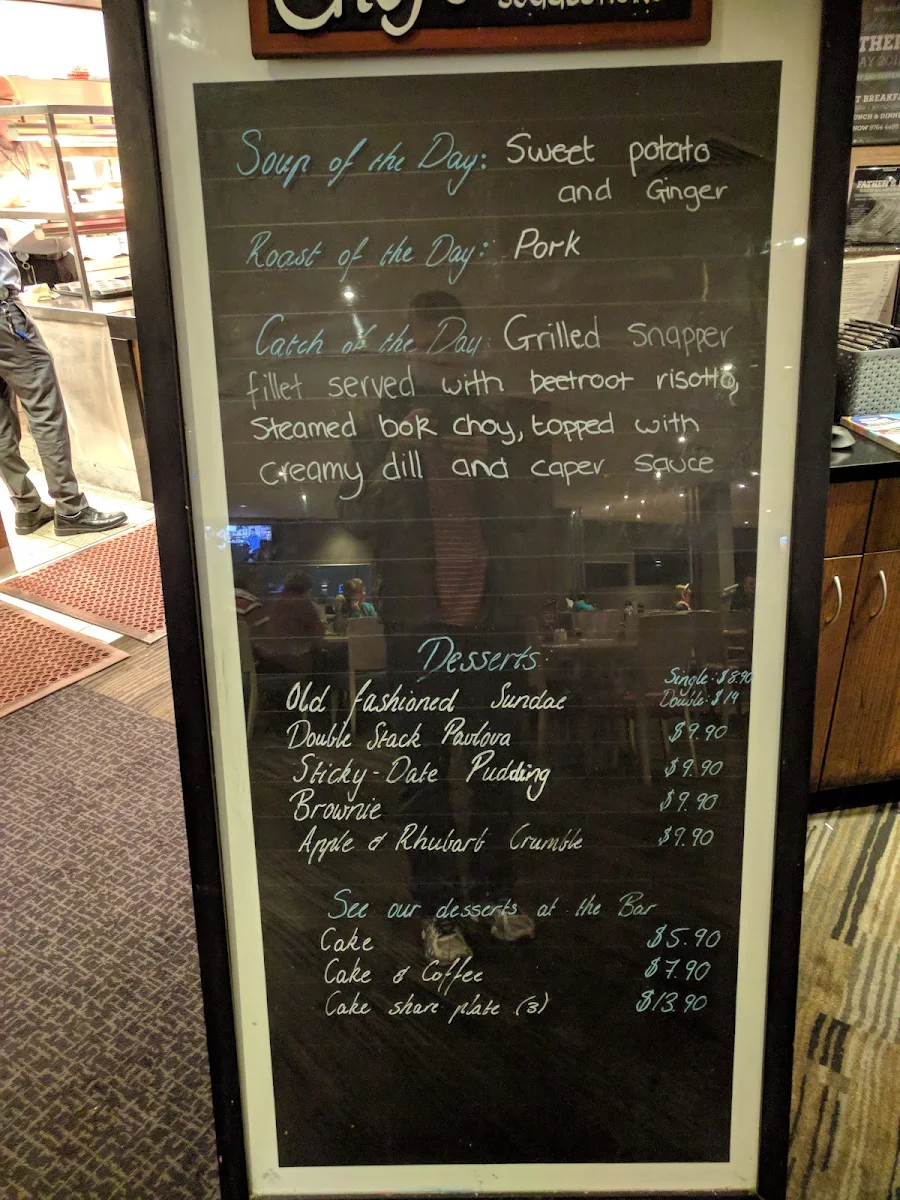 Chef's
SUGGESTIONS
Soup of the Day: Sweet potato
and Ginger
Roast of the Day: Pork
Catch of the Day: Grilled Snapper
fillet served with beetroot risotto,
Steamed bok choy, topped with
creamy dill and caper sauce
Desserts:
Single: $8.90
Old fashioned Sundae Double: $14
Double Stack Pavlova $9.90
Sticky-Date Pudding $9.90
Brownie $9.90
Apple & Rhubarb Crumble $9.90
See our desserts at the Bar
Cake $5.90
Cake & Coffee $7.90
Cake share plate (3) $13.90